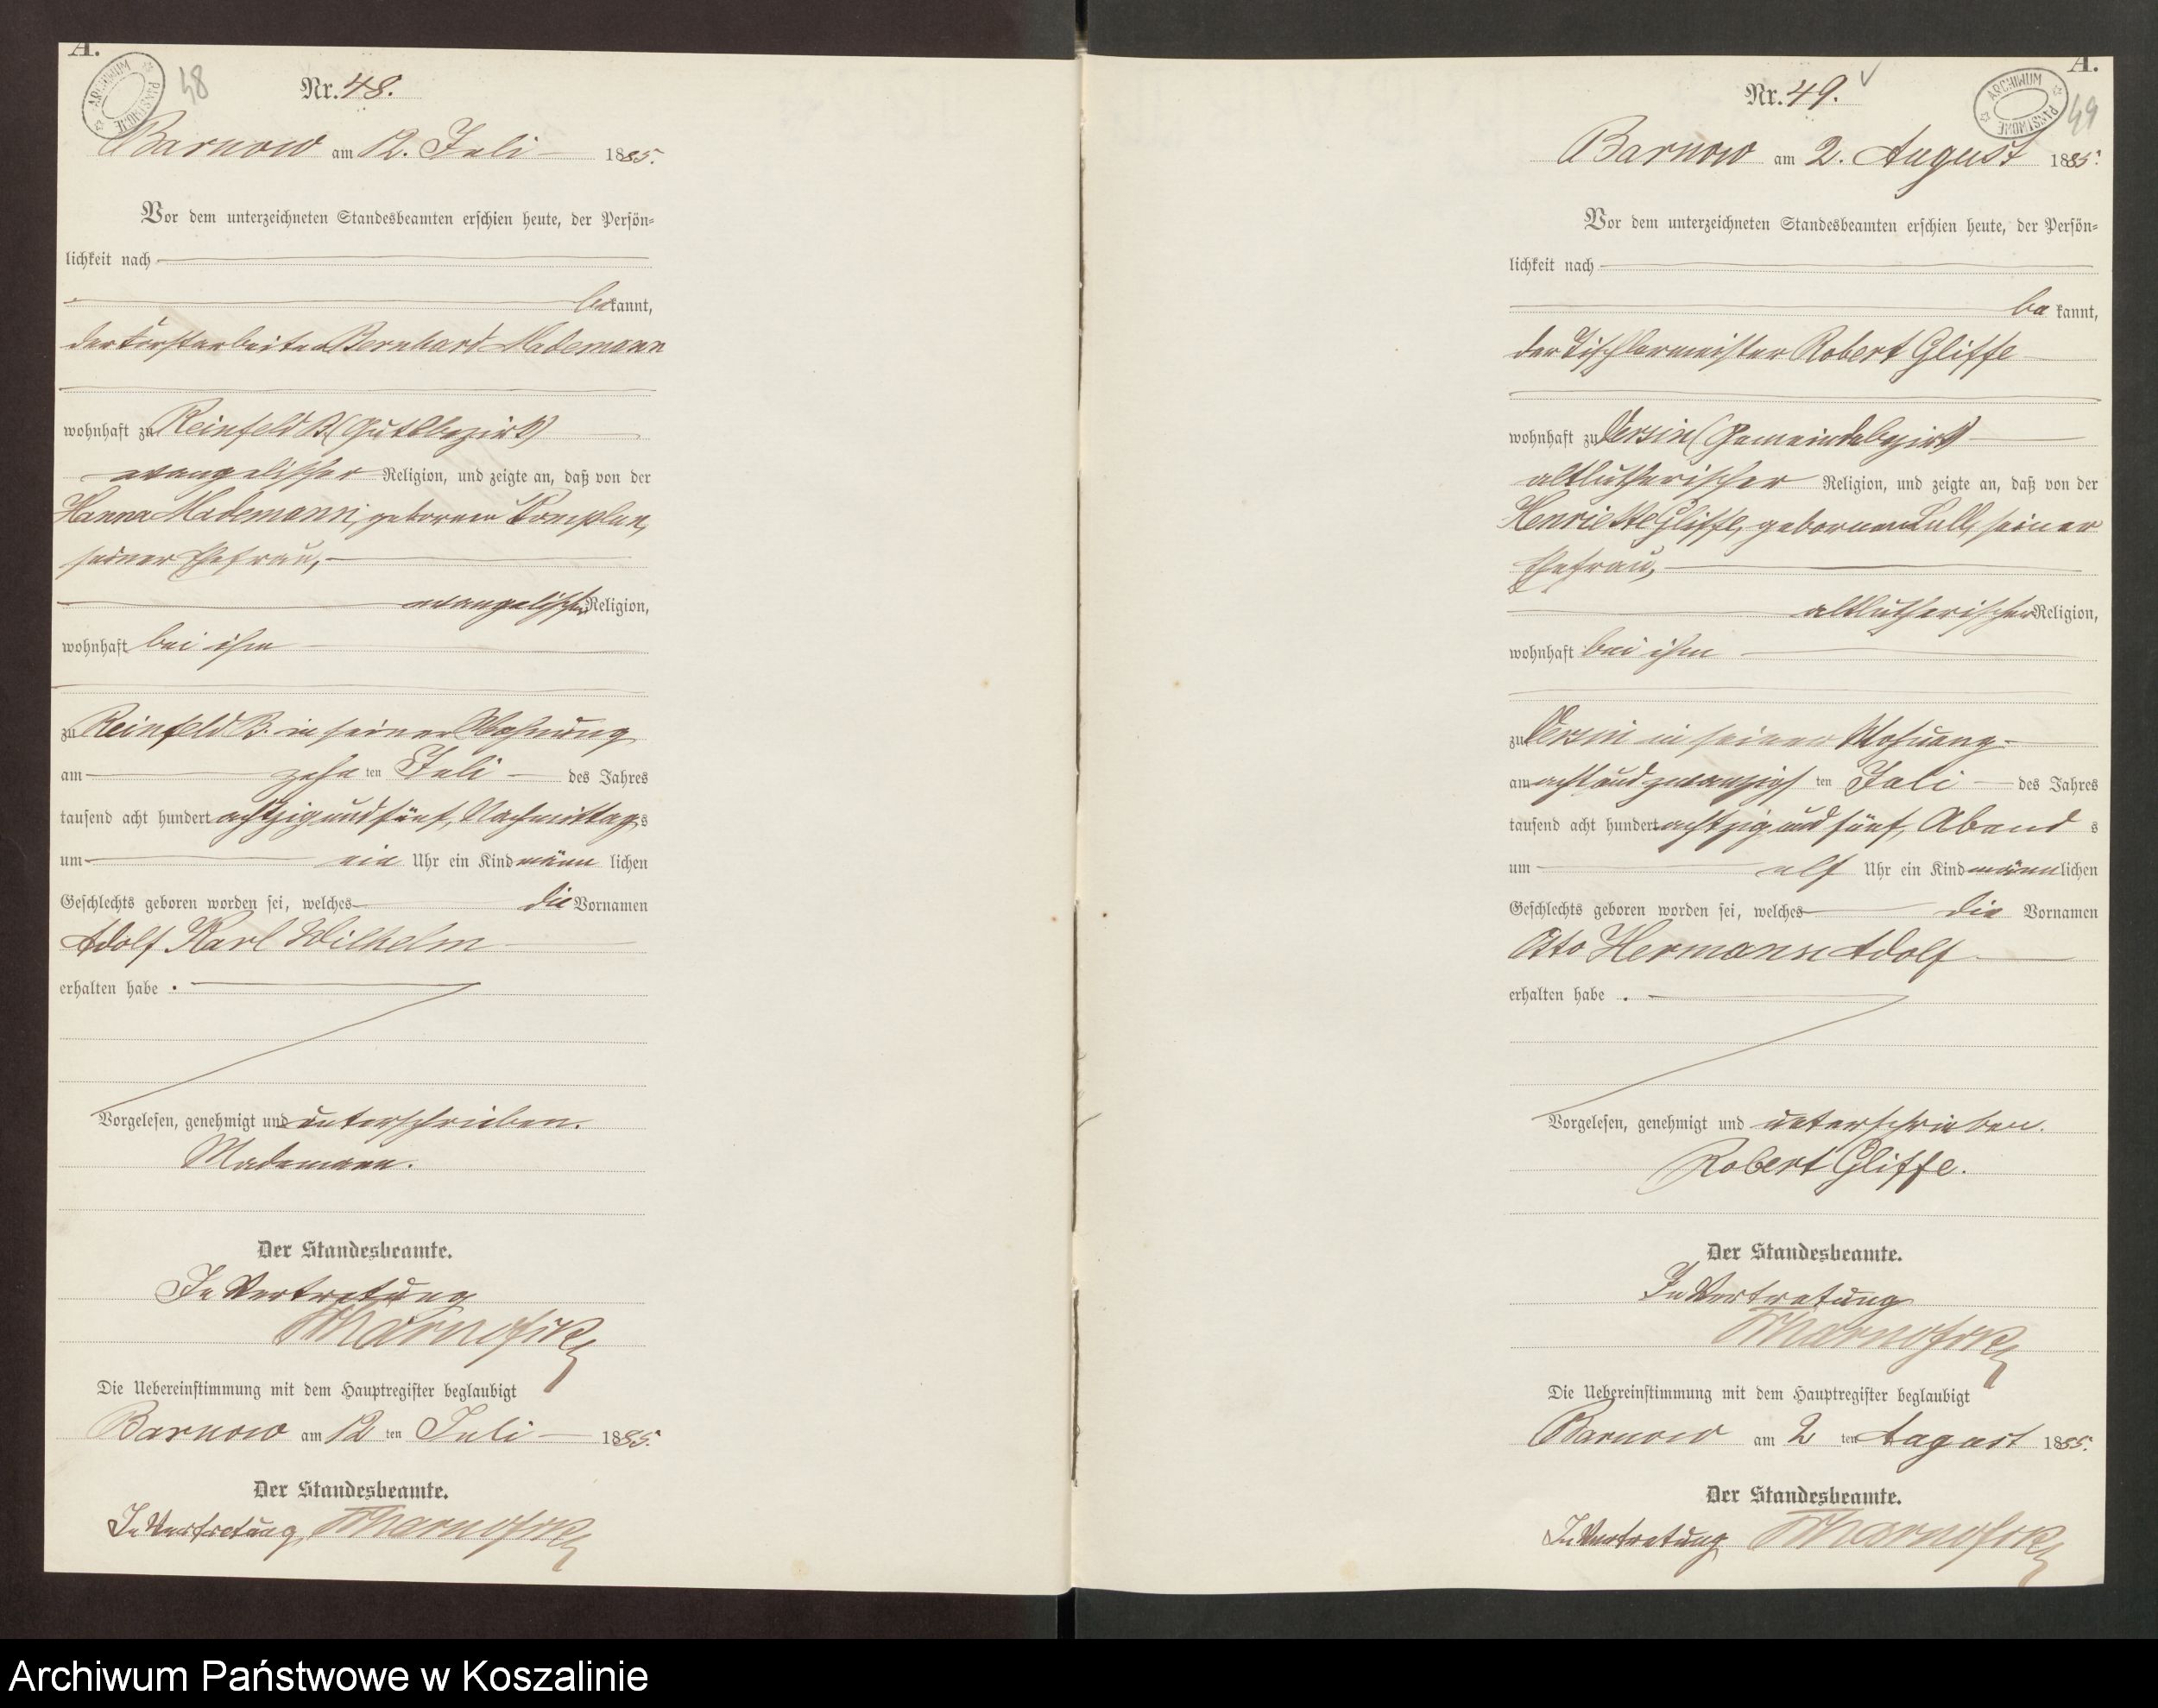 A.
ARCHIWUM PAŃSTWOWE
48
Nr. 48.
Barnow am 12. Juli 1885.
Vor dem unterzeichneten Standesbeamten erschien heute, der Persön-
lichkeit nach
bekannt,
der Forstarbeiter Bernhard Mademann
wohnhaft zu Reinfeld B (Gutsbezirk)
evangelischer Religion, und zeigte an, daß von der
Hanna Mademann, geborenen
seiner Ehefrau,
evangelischer Religion,
wohnhaft bei ihm
zu Reinfeld B. in seiner Wohnung
am zehn ten Juli des Jahres
tausend acht hundert achtzig und fünf, Nachmittags
um ein Uhr ein Kind männlichen
Geschlechts geboren worden sei, welches die Vornamen
Adolf Karl Wilhelm
erhalten habe.
Vorgelesen, genehmigt und unterschrieben.
Mademann.
Der Standesbeamte.
In Vertretung
Die Uebereinstimmung mit dem Hauptregister beglaubigt
Barnow am 12 ten Juli 1885.
Der Standesbeamte.
In Vertretung
A.
ARCHIWUM PAŃSTWOWE
49
Nr. 49.
Barnow am 2. August 1885.
Vor dem unterzeichneten Standesbeamten erschien heute, der Persön-
lichkeit nach
bekannt,
der Tischlermeister Robert Gliffe
wohnhaft zu Versin (Gemeindebezirk)
altlutherischer Religion, und zeigte an, daß von der
Henriette Gliffe, geborenen seiner
Ehefrau,
altlutherischer Religion,
wohnhaft bei ihm
zu Versin in seiner Wohnung
am acht und zwanzigsten Juli des Jahres
tausend acht hundert achtzig und fünf, Abends
um elf Uhr ein Kind männlichen
Geschlechts geboren worden sei, welches die Vornamen
Otto Hermann Adolf
erhalten habe.
Vorgelesen, genehmigt und unterschrieben.
Robert Gliffe.
Der Standesbeamte.
In Vertretung
Die Uebereinstimmung mit dem Hauptregister beglaubigt
Barnow am 2 ten August 1885.
Der Standesbeamte.
In Vertretung
Archiwum Państwowe w Koszalinie